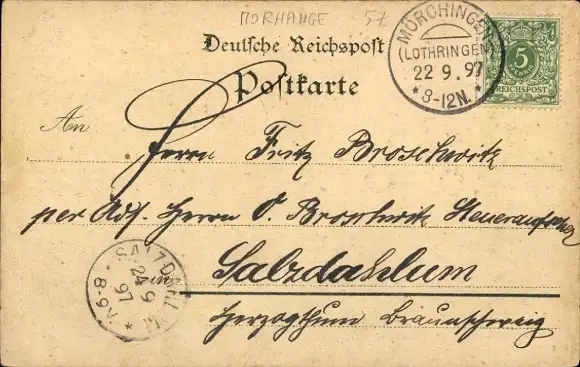 MORHANGE 57
Deutsche Reichspost
Postkarte
MÖRCHINGEN
(LOTHRINGEN)
22 9. 97
* 8-12N. *
5
REICHSPOST
An
Herrn Fritz Broschwitz
per Adr. Herrn O. Broschwitz Steueraufseher
in Salzdahlum
Herzogthum Braunschweig
SALZDAHLUM
24 9
97
* 6-8 N